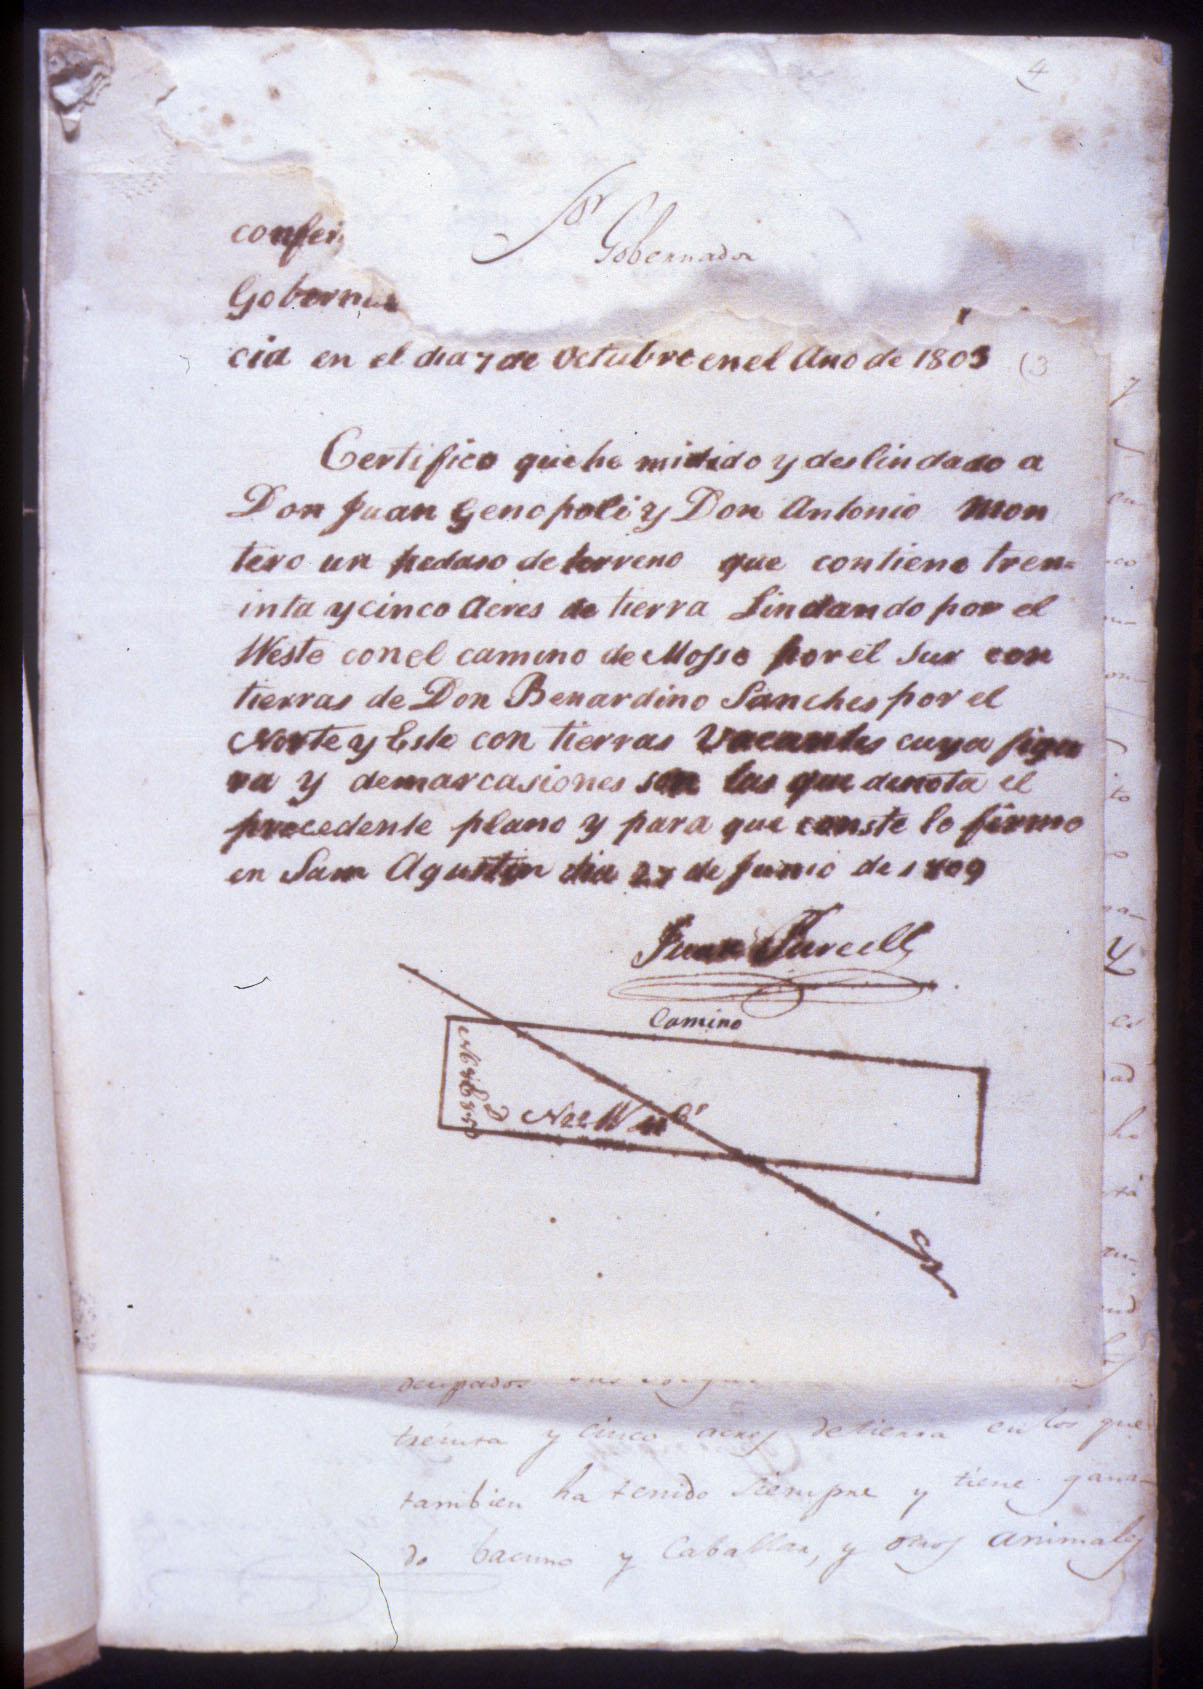 4
Sor
Gobernador
confer
Gobern
cia en el dia 7 de Octubre en el Ano de 1803
Certifico que he midido y deslindado a
Don Juan Genopoli y Don Antonio Mon
tero un pedaso de terreno que contiene tren=
inta y cinco Acres de tierra Lindando por el
Weste con el camino de Mosse por el Sur con
tierras de Don Benardino Sanches por el
Norte y Este con tierras Vacantes cuya figu
ra y demarcasiones son las que denota el
precedente plano y para que conste lo firmo
en San Agustin dia 27 de Junio de 1809
Juan Purcell
Camino
ocupados
treinta y cinco acres de tierra en los que
tambien ha tenido siempre y tiene gana-
do bacuno y Caballar, y otros animales